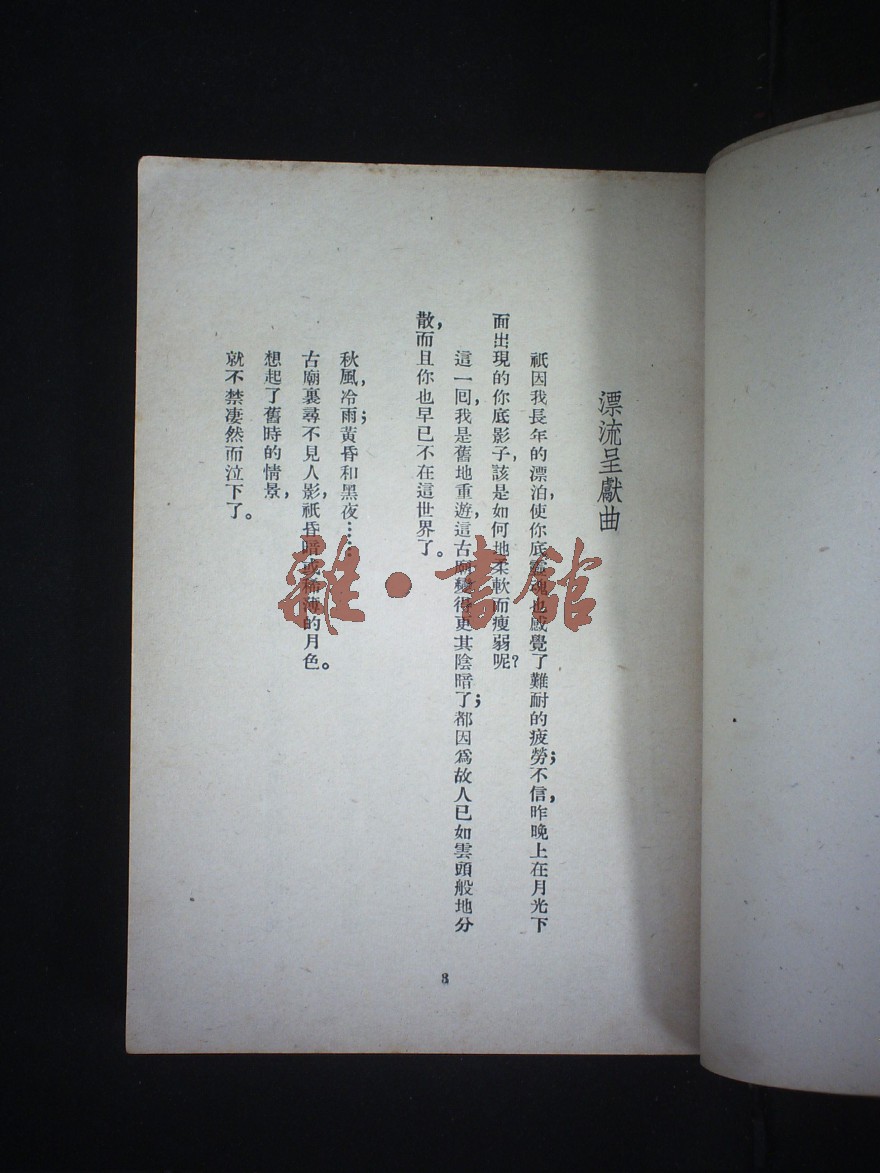 漂流呈獻曲
祇因我長年的漂泊,使你底靈魂也感覺了難耐的疲勞;不信,昨晚上在月光下
面出現的你底影子,該是如何地柔軟而瘦弱呢?
這一回,我是舊地重遊,這古廟變得更其陰暗了;都因爲故人已如雲頭般地分
散,而且你也早已不在這世界了。
秋風,冷雨;黃昏和黑夜……
古廟裏尋不見人影,祇昏暗或稀薄的月色。
想起了舊時的情景,
就不禁凄然而泣下了。
3
雜·書館